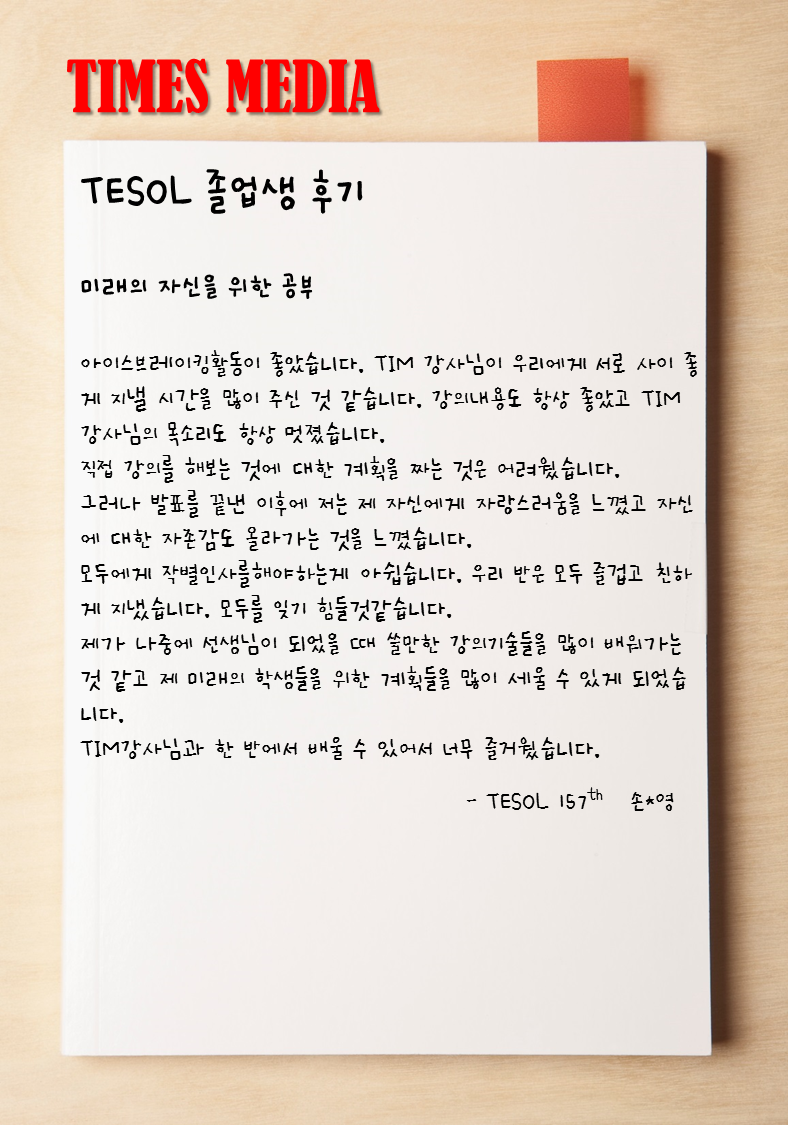 TIMES MEDIA
TESOL 졸업생 후기
미래의 자신을 위한 공부
아이스브레이킹활동이 좋았습니다. TIM 강사님이 우리에게 서로 사이 좋
게 지낼 시간을 많이 주신 것 같습니다. 강의내용도 항상 좋았고 TIM
강사님의 목소리도 항상 멋졌습니다.
직접 강의를 해보는 것에 대한 계획을 짜는 것은 어려웠습니다.
그러나 발표를 끝낸 이후에 저는 제 자신에게 자랑스러움을 느꼈고 자신
에 대한 자존감도 올라가는 것을 느꼈습니다.
모두에게 작별인사를해야하는게 아쉽습니다. 우리 반은 모두 즐겁고 친하
게 지냈습니다. 모두를 잊기 힘들것같습니다.
제가 나중에 선생님이 되었을 때 쓸만한 강의기술들을 많이 배워가는
것 같고 제 미래의 학생들을 위한 계획들을 많이 세울 수 있게 되었습
니다.
TIM강사님과 한 반에서 배울 수 있어서 너무 즐거웠습니다.
- TESOL 157th 손*영